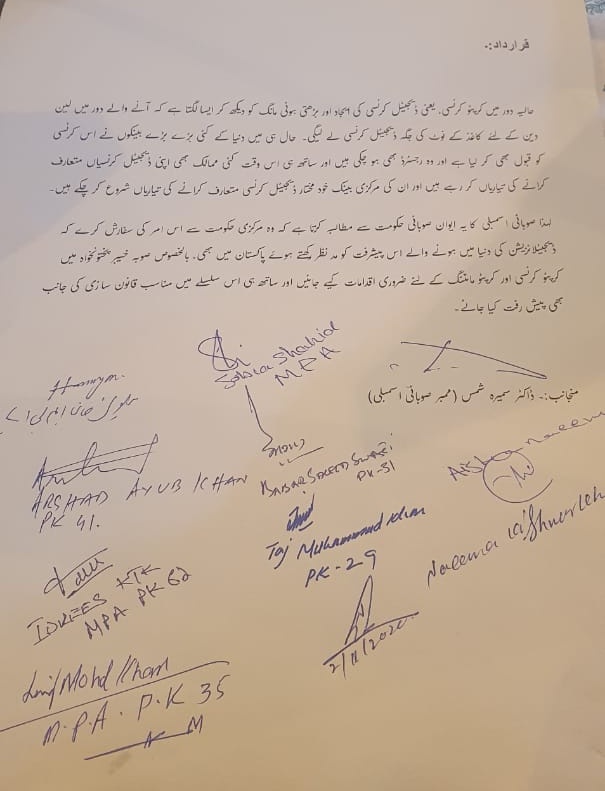 قرارداد:۔
حالیہ دور میں کرپٹو کرنسی، یعنی ڈیجیٹل کرنسی کی ایجاد اور بڑھتی ہوئی مانگ کو دیکھ کر ایسا لگتا ہے کہ آنے والے دور میں لین
دین کے لئے کاغذ کے نوٹ کی جگہ ڈیجیٹل کرنسی لے لیگی۔ حال ہی میں دنیا کے کئی بڑے بڑے بینکوں نے اس کرنسی
کو قبول بھی کر لیا ہے اور وہ رجسٹرڈ بھی ہو چکی ہیں اور ساتھ ہی اس وقت کئی ممالک بھی اپنی ڈیجیٹل کرنسیاں متعارف
کرانے کی تیاریاں کر رہے ہیں اور ان کی مرکزی بینک خود مختار ڈیجیٹل کرنسی متعارف کرانے کی تیاریاں شروع کر چکے ہیں۔
لہذا صوبائی اسمبلی کا یہ ایوان صوبائی حکومت سے مطالبہ کرتا ہے کہ وہ مرکزی حکومت سے اس امر کی سفارش کرے کہ
ڈیجیٹلائزیشن کی دنیا میں ہونے والے اس پیشرفت کو مد نظر رکھتے ہوے پاکستان میں بھی، بالخصوص صوبہ خیبر پختونخواہ میں
کرپٹو کرنسی اور کرپٹو مائننگ کے لئے ضروری اقدامات کیے جائیں اور ساتھ ہی اس سلسلے میں مناسب قانون سازی کی جانب
بھی پیش رفت کیا جائے۔
منجانب:۔ ڈاکٹر سمیرہ شمس (ممبر صوبائی اسمبلی)
Sobia Shahid
MPA
Humayun
ARSHAD AYUB KHAN
PK 41.
BABAR SALEEM SWATI
PK-31
Aisha naeem
Taj Muhammad Khan
PK-29
Naeema Kishwer Kh
IDREES KTK
MPA PK 62
2/11/2020
Mohd Khan
M.P.A. P.K 35